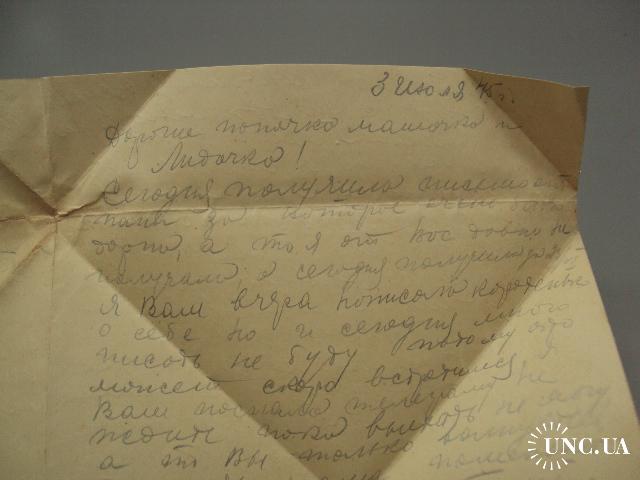 3 Июля 45 г.
Дорогие папочка мамочка и
Лидочка!
Сегодня получила письмо от
папы за которое очень
дарна, а то я от Вас давно не
получала, а сегодня получила
я Вам вчера написала
о себе но и сегодня много
писать не буду потому что
может скоро встретимся я
Вам послала телеграму не
ждите пока выехать не могу
а то Вы только
UNC.UA